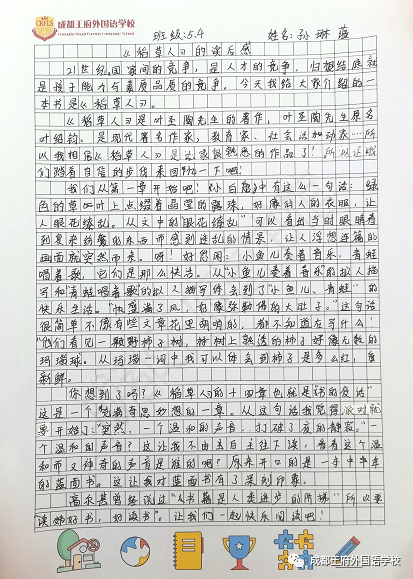 成都王府外国语学校
Chengdu Royal Foreign Language School
班级:5.4 姓名:孙琳蕴
《稻草人》的读后感
21世纪国家间的竞争,是人才的竞争,归根结底就
是孩子能力与素质品质的竞争,今天我给大家介绍的一
本书是《稻草人》。
《稻草人》是叶圣陶先生的著作,叶圣陶先生原名
叶绍钧。是现代著名作家,教育家、社会活动家…所
以我相信《稻草人》是 熟悉的作品了!所以让我
们踏着自信的步伐来回 一下吧!
我们从第一章开始吧!《小白船》中有这么一句话:绿
色的草叶上点缀着晶莹的露珠,好像仙人的衣服,让
人眼花缭乱。从文中的"眼花缭乱"可以看出当时眼睛看
到复杂 的东西而感到迷乱的情景,让人浮想连篇的
画面就突然而来。呀!好悠闲,小鱼儿奏着音乐,青蛙
唱着歌,它们是那么快活。从"小鱼儿奏着音乐的拟人描
写和"青蛙唱着歌"的拟人描写体会到了"小鱼儿、青蛙"的
快乐生活。"帆盛满了风,有像弥勒佛的大肚子。"这句话
很简单不像有些文章花里胡哨的,都不知道在写什么!
"他们看见一颗野柿子树,树上熟透的柿子好像无数的
玛瑙球。从玛瑙一词中我可以体会到柿子是多么红,多
新鲜。
你想到了吗?《稻草人》的十四章也就是"书的夜话"
这是一个充满奇思妙想的一章。从这句话我觉得派对就
要开始了:"突然,一个温和的声音,打破了夜的静寂。"一
个温和的声音?这让我不由自主往下读,看看这个温
和而又神奇的声音是谁的呢?原来开口的是一本半新半
的蓝面书。这让我对蓝面书有了深刻印象。
高尔基曾经说过"《书籍是人类进步的阶梯"所以要
读好书,好读书"。让我们一起快乐阅读吧!
成都王府外国语学校